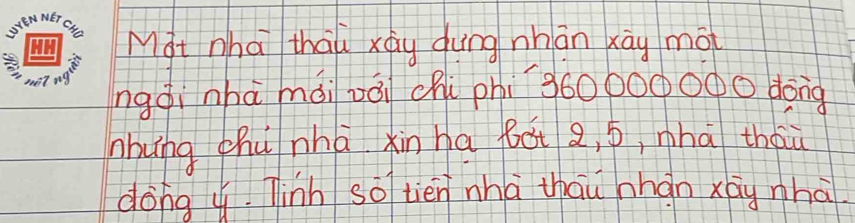 LUYỆN NÉT CHỮ
HH
Rèn nết người
Một nhà thầu xây dựng nhận xây một
ngôi nhà mới với chi phí 360000000 đồng
nhưng chủ nhà xin hạ bớt 2,5, nhà thầu
đồng ý. Tính số tiền nhà thầu nhận xây nhà.